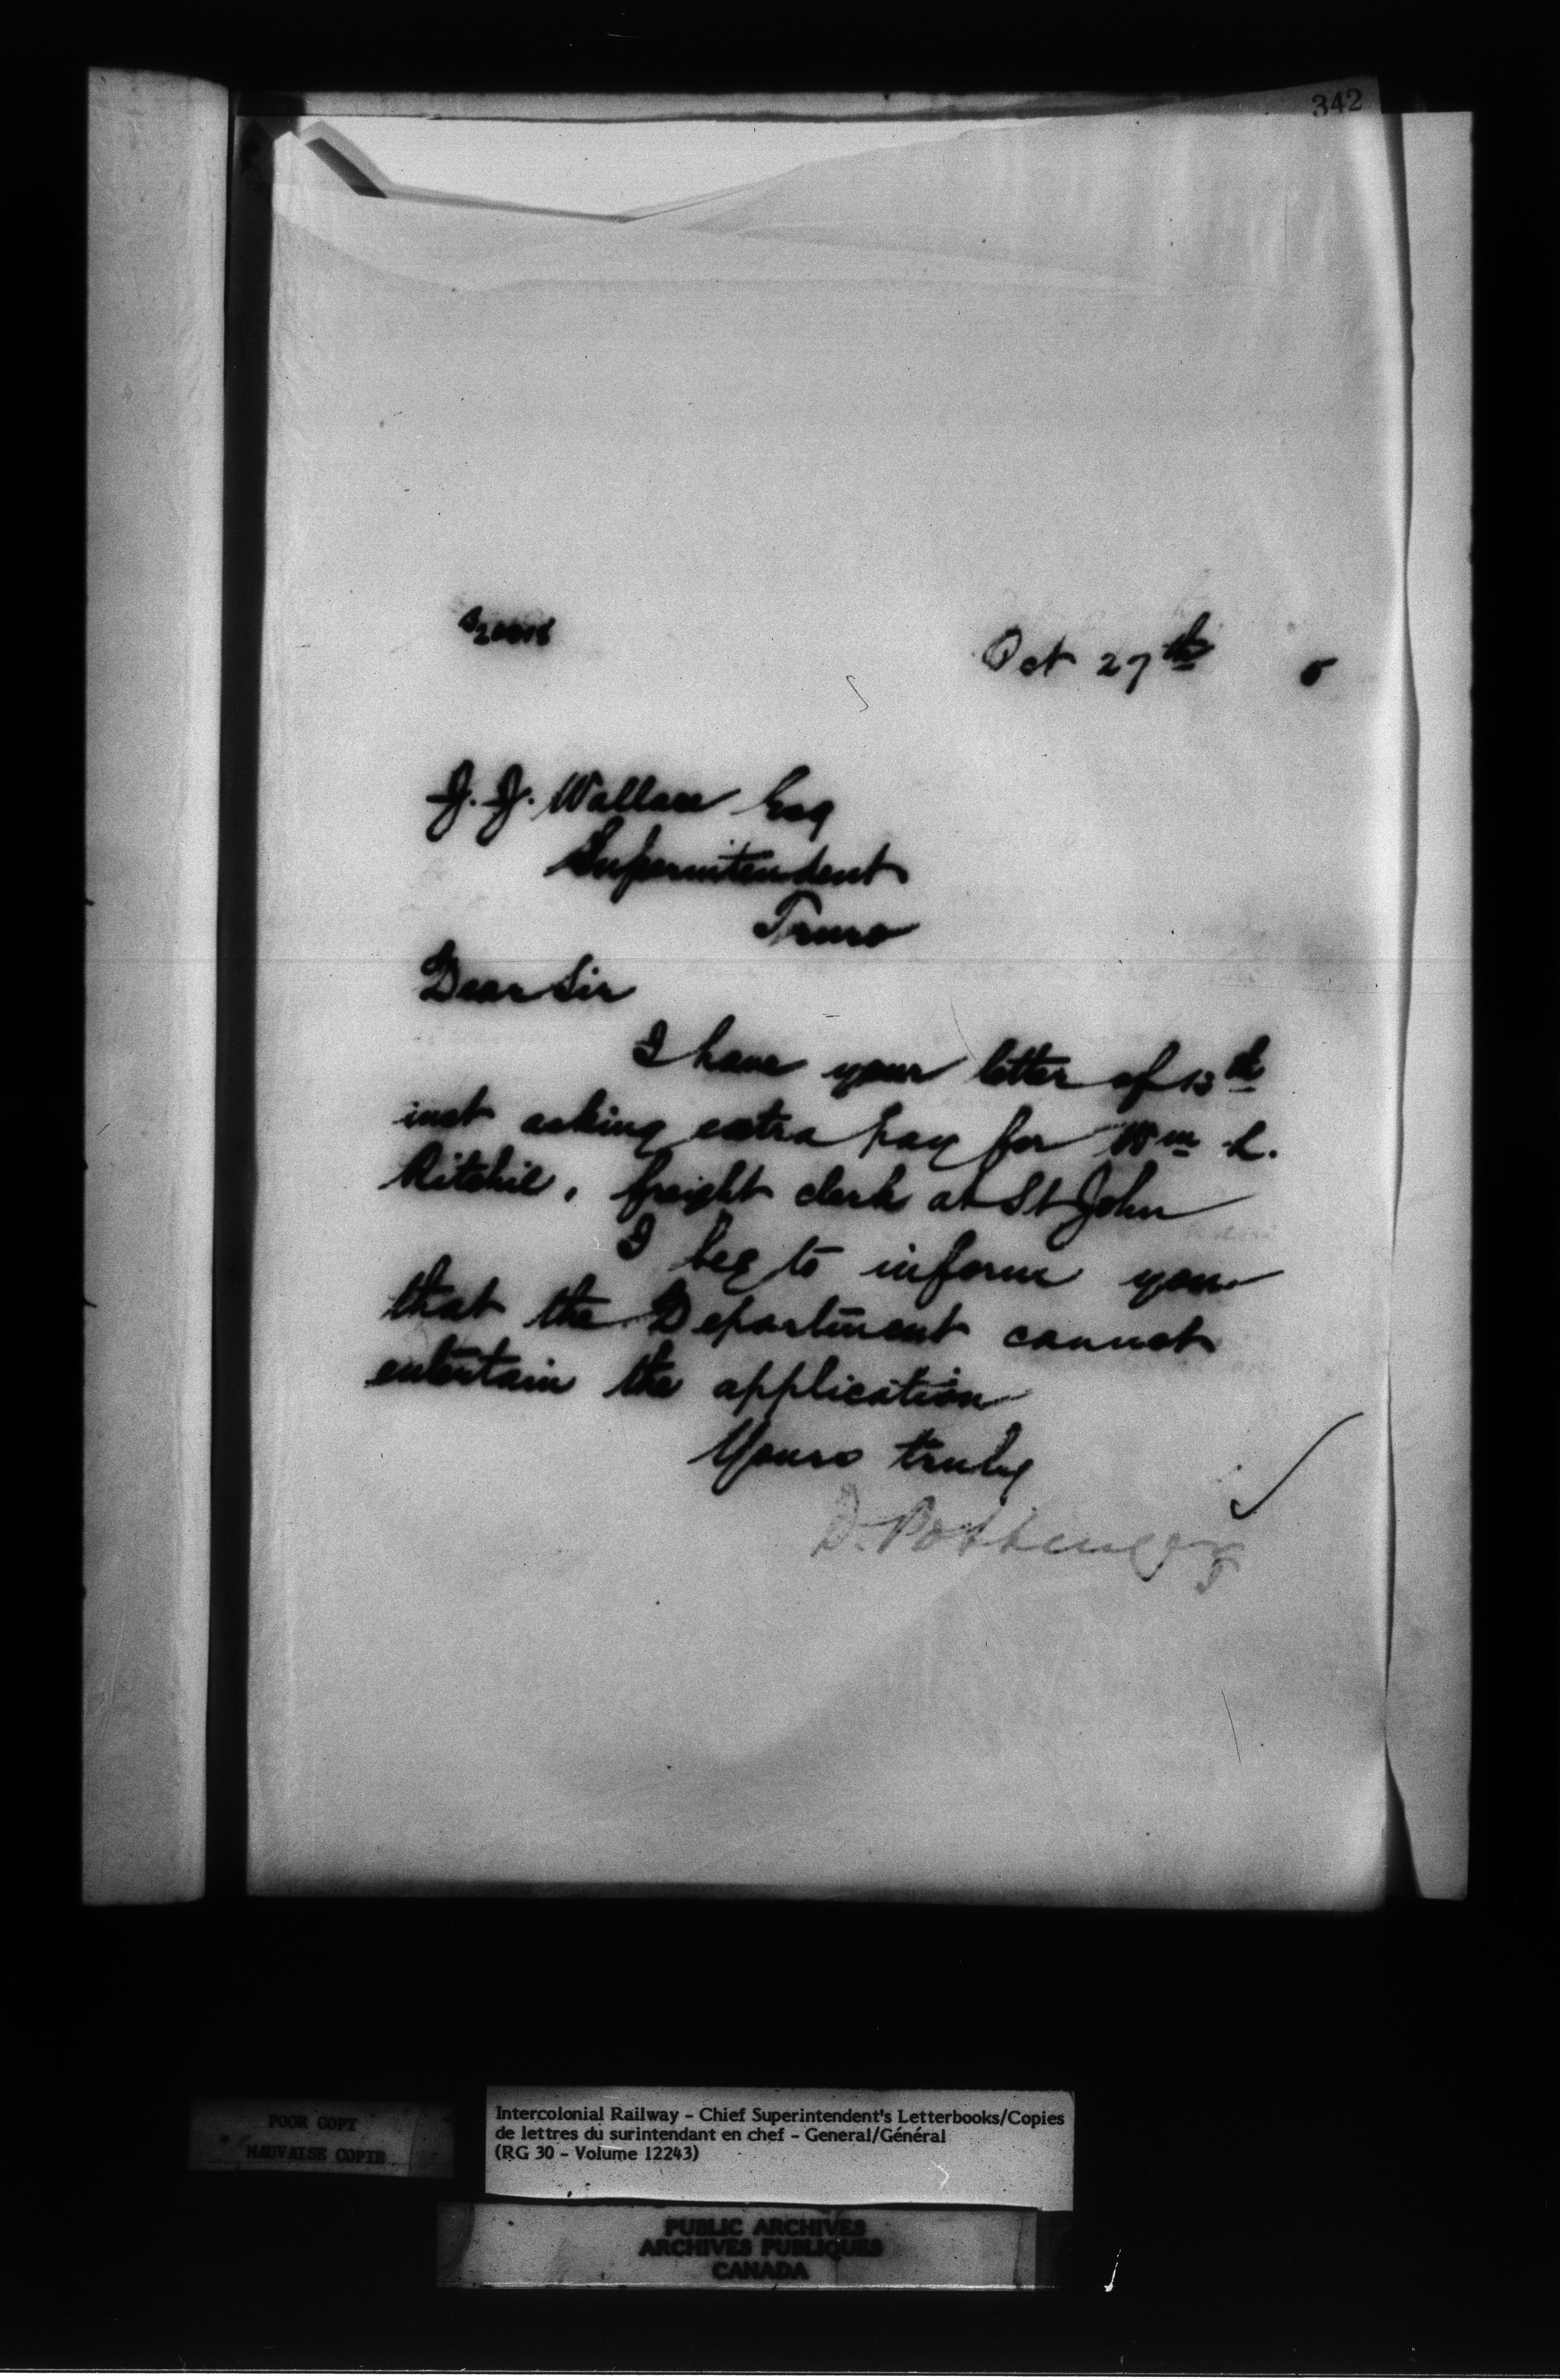 342
Oct 27th 5
J. J. Wallace Esq
Superintendent
Truro
Dear Sir
I have your letter of 13th
inst asking extra pay for Wm L.
Ritchie, freight clerk at St John
I beg to inform you
that the Department cannot
entertain the application
Yours truly
D. Pottinger
POOR COPY
MAUVAISE COPIE
Intercolonial Railway - Chief Superintendent's Letterbooks/Copies
de lettres du surintendant en chef - General/Général
(RG 30 - Volume 12243)
PUBLIC ARCHIVES
ARCHIVES PUBLIQUES
CANADA